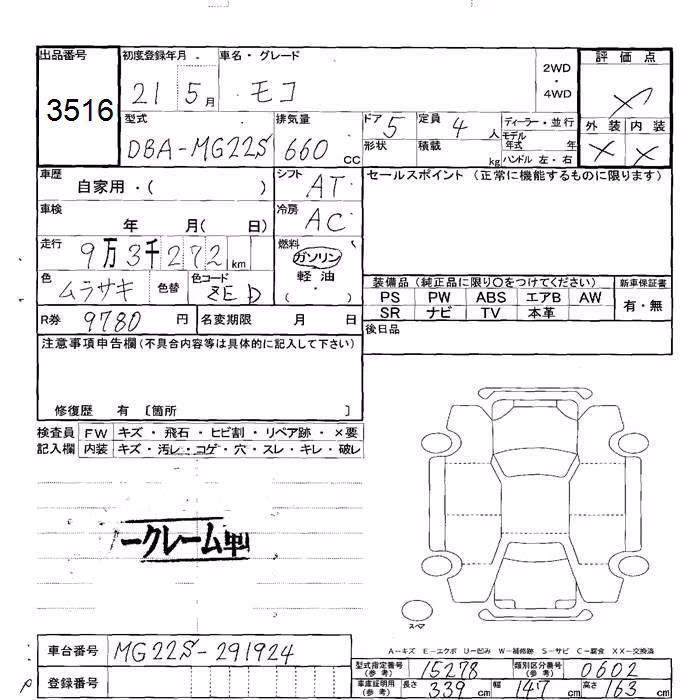 出品番号 初度登録年月 車名・グレード 評価点
3516 21 5月 モコ 2WD・4WD
型式 排気量 ドア 5 定員 4人 ディーラー・並行 外装 内装
DBA-MG22S 660cc 形状 積載 kg モデル年式 年 × ×
ハンドル 左・右
車歴 自家用・( ) シフト AT セールスポイント (正常に機能するものに限ります)
車検 年 月( 日) 冷房 AC
走行 9万3千272km 燃料 ガソリン
軽油
色 ムラサキ 色替 色コード 装備品 (純正品に限り○をつけてください) 新車保証書
PS PW ABS エアB AW 有・無
SR ナビ TV 本革
R券 9780円 名変期限 月 日 後日品
注意事項申告欄(不具合内容等は具体的に記入して下さい)
修復歴 有 〔箇所 〕
検査員 FW キズ・飛石・ヒビ割・リペア跡・×要
記入欄 内装 キズ・汚レ・コゲ・穴・スレ・キレ・破レ
ークレーム
スペア
A-キズ E-エクボ U-凹み W-補修跡 S-サビ C-腐食 XX-交換済
車台番号 MG22S-291924 型式指定番号(参考) 15278 類別区分番号(参考) 0602
登録番号 車庫証明用(参考) 長さ 339cm 幅 147cm 高さ 163cm